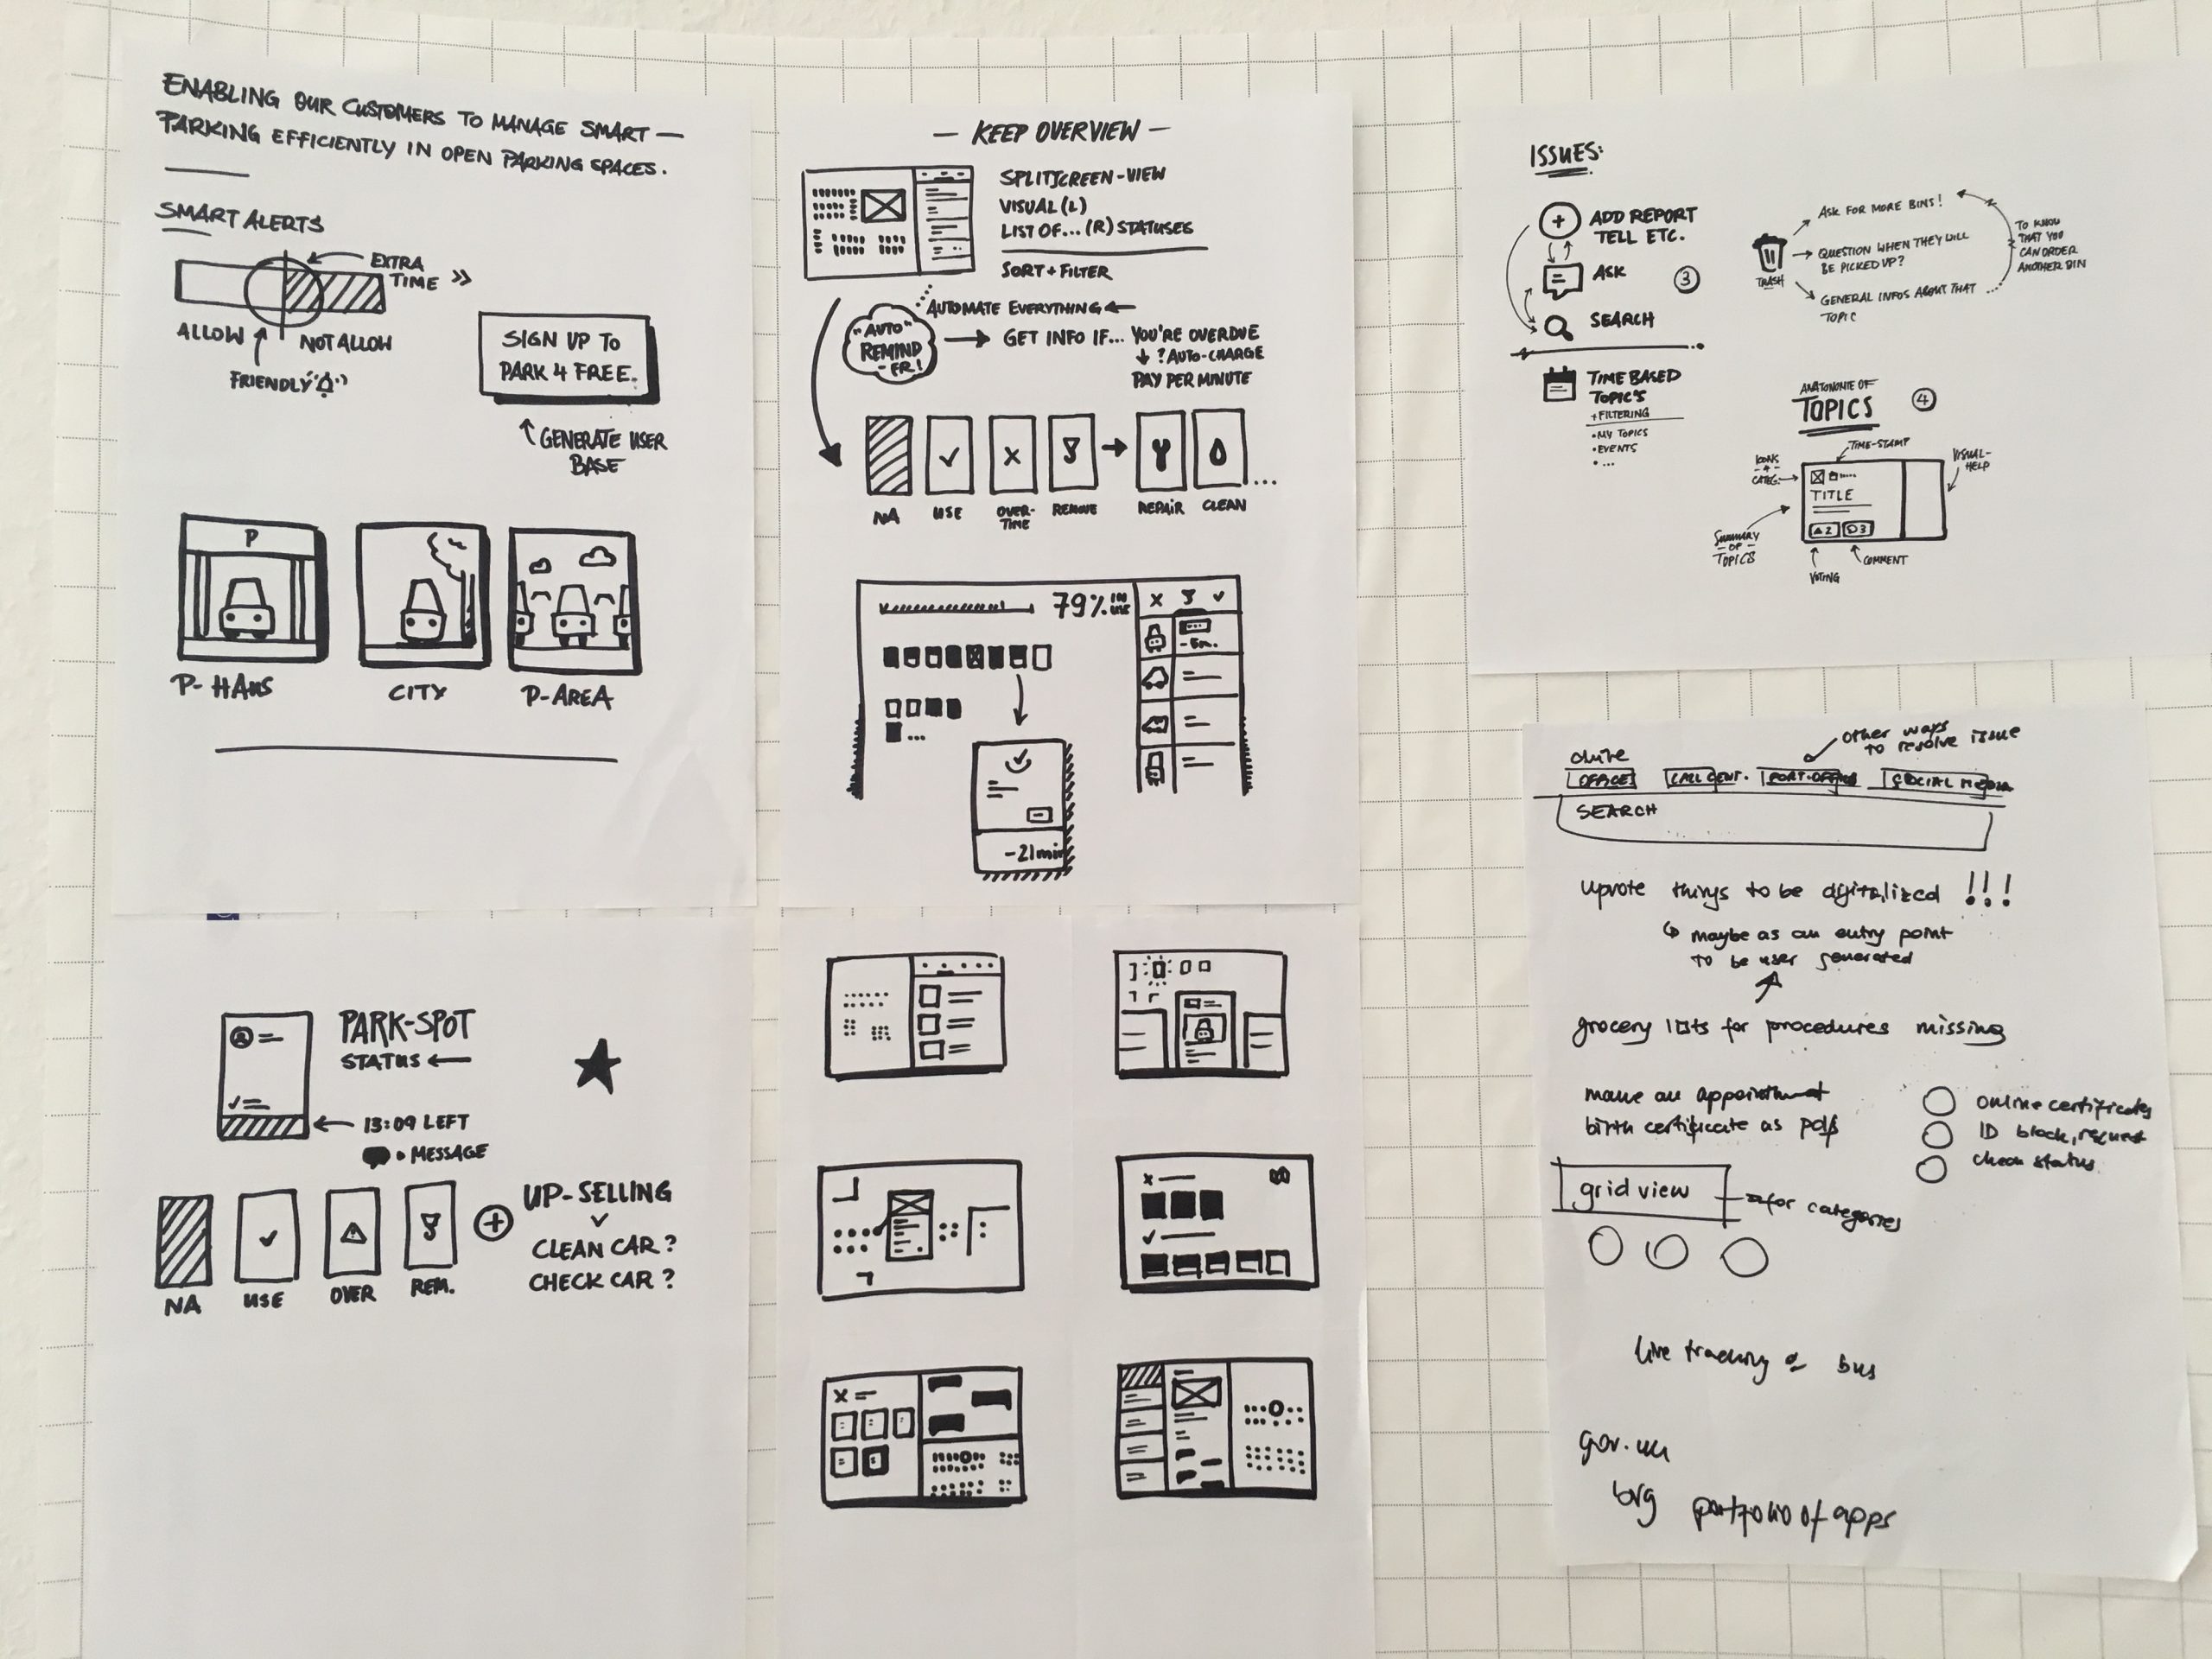 ENABLING OUR CUSTOMERS TO MANAGE SMART —
PARKING EFFICIENTLY IN OPEN PARKING SPACES.
SMART ALERTS
EXTRA
TIME >>
ALLOW
NOT ALLOW
FRIENDLY
SIGN UP TO
PARK 4 FREE.
GENERATE USER
BASE
P
P-HAUS
CITY
P-AREA
— KEEP OVERVIEW —
SPLITSCREEN-VIEW
VISUAL (L)
LIST OF... (R) STATUSES
SORT + FILTER
AUTOMATE EVERYTHING
"AUTO"
REMIND
-ER!
GET INFO IF... YOU'RE OVERDUE
? AUTO-CHARGE
PAY PER MINUTE
NA
USE
OVER-
TIME
REMOVE
REPAIR
CLEAN
...
79% IN
USE
-5m.
...
-21min
PARK-SPOT
STATUS
13:09 LEFT
• MESSAGE
NA
USE
OVER
REM.
UP-SELLING
CLEAN CAR?
CHECK CAR?
ISSUES:
ADD REPORT
TELL ETC.
ASK
3
SEARCH
TIME BASED
TOPICS
+ FILTERING
• MY TOPICS
• EVENTS
• ...
TRASH
ASK FOR MORE BINS!
QUESTION WHEN THEY WILL
BE PICKED UP?
GENERAL INFOS ABOUT THAT
TOPIC
TO KNOW
THAT YOU
CAN ORDER
ANOTHER BIN
ANATOMIE OF
TOPICS
4
TIME-STAMP
ICONS
+
CATEG.
VISUAL-
HELP
TITLE
2
3
SUMMARY
- OF -
TOPICS
VOTING
COMMENT
other ways
to resolve issue
OFFICE
CALL CENT.
SOCIAL MEDIA
SEARCH
upvote things to be digitalized !!!
maybe as an entry point
to be user generated
grocery lists for procedures missing
make an appointment
birth certificate as pdf
online certificates
ID block, request
check status
grid view
for categories
live tracking of bus
gov.uk
bvg
portfolio of apps